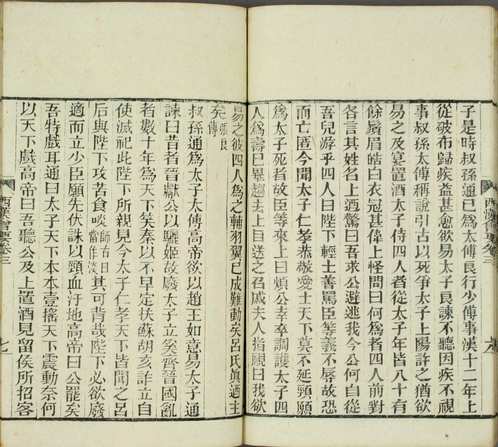 子是時叔孫通已為太傅良行少傅事漢十二年上
從破布歸疾益甚愈欲易太子良諫不聽因疾不視
事叔孫太傅稱說引古以死爭太子上陽許之猶欲
易之及宴置酒太子侍四人者從太子年皆八十有
餘鬚眉皓白衣冠甚偉上怪問曰何為者四人前對
各言其姓名上迺驚曰吾求公避逃我今公何自從
吾兒游乎四人曰陛下輕士善罵臣等義不辱故恐
而亡匿今聞太子仁孝恭敬愛士天下莫不延頸願
為太子死者故臣等來上曰煩公幸卒調護太子四
人為壽已畢趨去上目送之召戚夫人指視曰我欲
易之彼四人為之輔羽翼已成難動矣呂氏真迺主
矣張良傳
叔孫通為太子太傅高帝欲以趙王如意易太子通
諫曰昔者晉獻公以驪姬故廢太子立奚齊晉國亂
者數十年為天下笑秦以不早定扶蘇胡亥詐立自
使滅祀此陛下所親見今太子仁孝天下皆聞之呂
后與陛下攻苦食啖師古曰啖當作淡其可背哉陛下必欲廢
適而立少臣願先伏誅以頸血汙地高帝曰公罷矣
吾特戲耳通曰太子天下本本壹搖天下震動奈何
以天下戲高帝曰吾聽公及上置酒見留侯所招客
西漢會要卷三
七